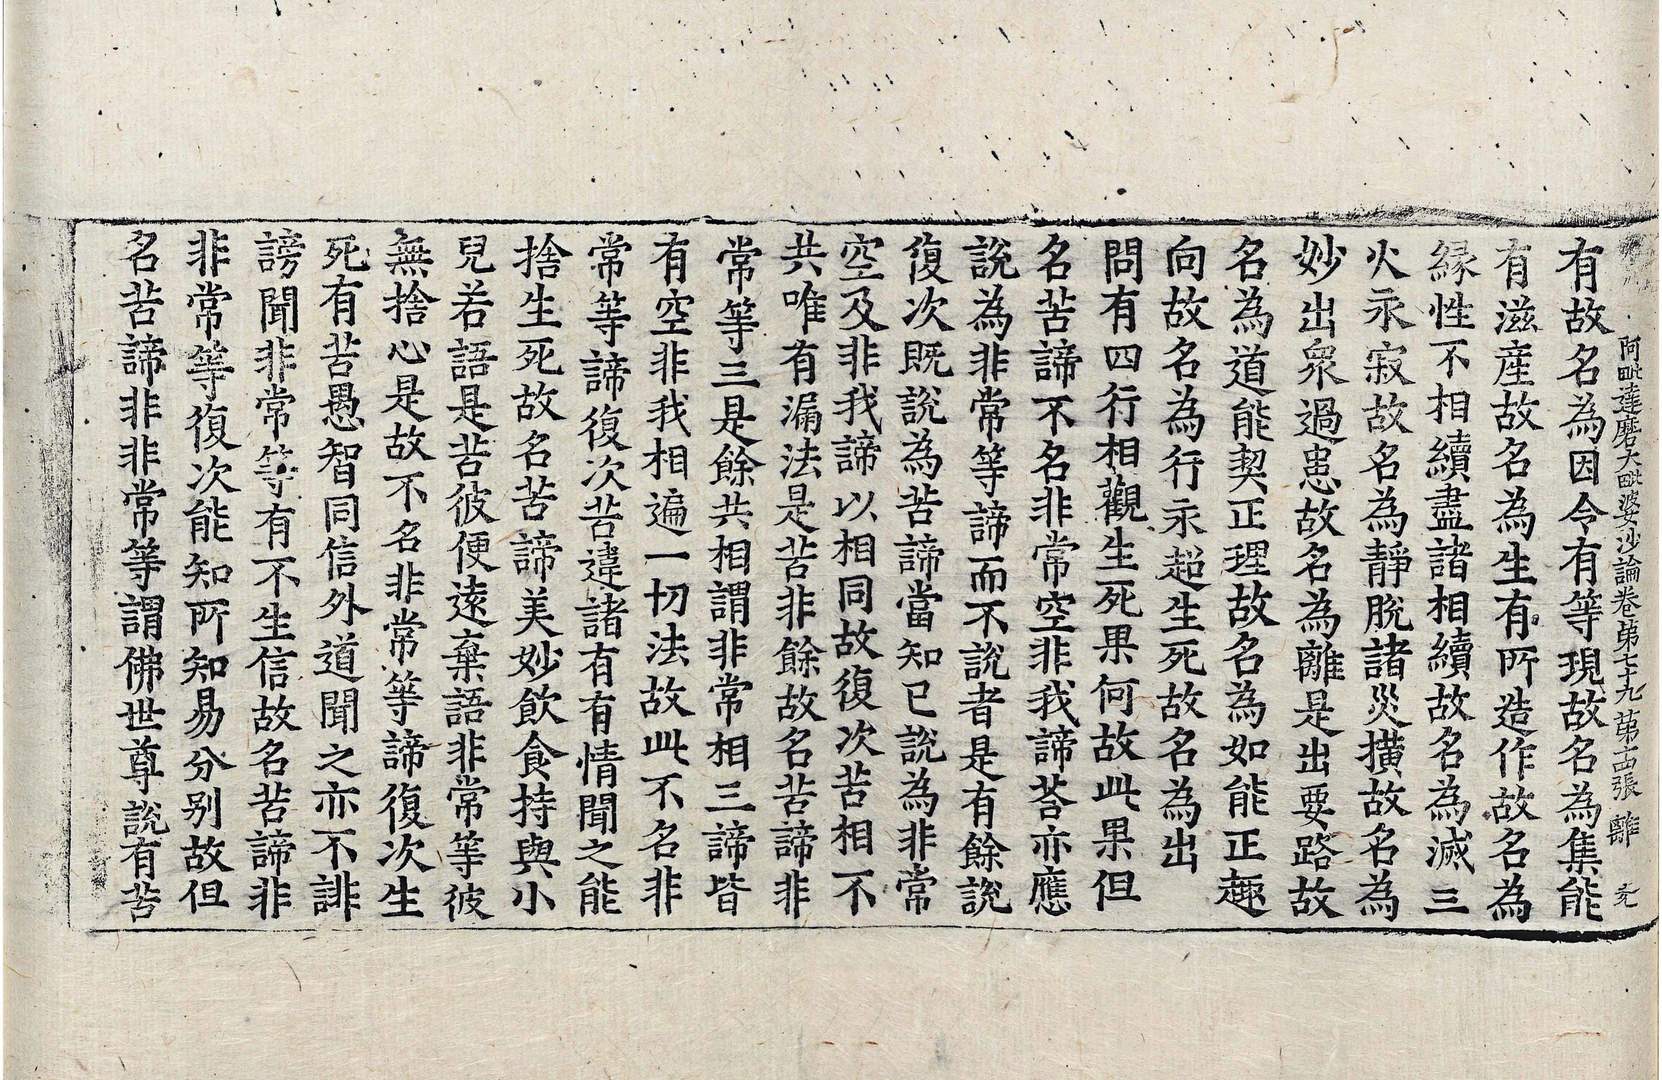 阿毗達磨大毗婆沙論卷第七十九第十四張 離
有故名為因令有等現故名為集能
有滋産故名為生有所造作故名為
緣性不相續盡諸相續故名為滅三
火永寂故名為靜脫諸災撗故名為
妙出衆過患故名為離是出要路故
名為道能契正理故名為如能正趣
向故名為行永超生死故名為出
問有四行相觀生死果何故此果但
名苦諦不名非常空非我諦荅亦應
說為非常等諦而不說者是有餘說
復次旣說為苦諦當知已說為非常
空及非我諦以相同故復次苦相不
共唯有漏法是苦非餘故名苦諦非
常等三是餘共相謂非常相三諦皆
有空非我相遍一切法故此不名非
常等諦復次苦違諸有有情聞之能
捨生死故名苦諦美妙飲食持與小
兒若語是苦彼便遠棄語非常等彼
無捨心是故不名非常等諦復次生
死有苦愚智同信外道聞之亦不誹
謗聞非常等有不生信故名苦諦非
非常等復次能知所知易分別故但
名苦諦非非常等謂佛世尊說有苦